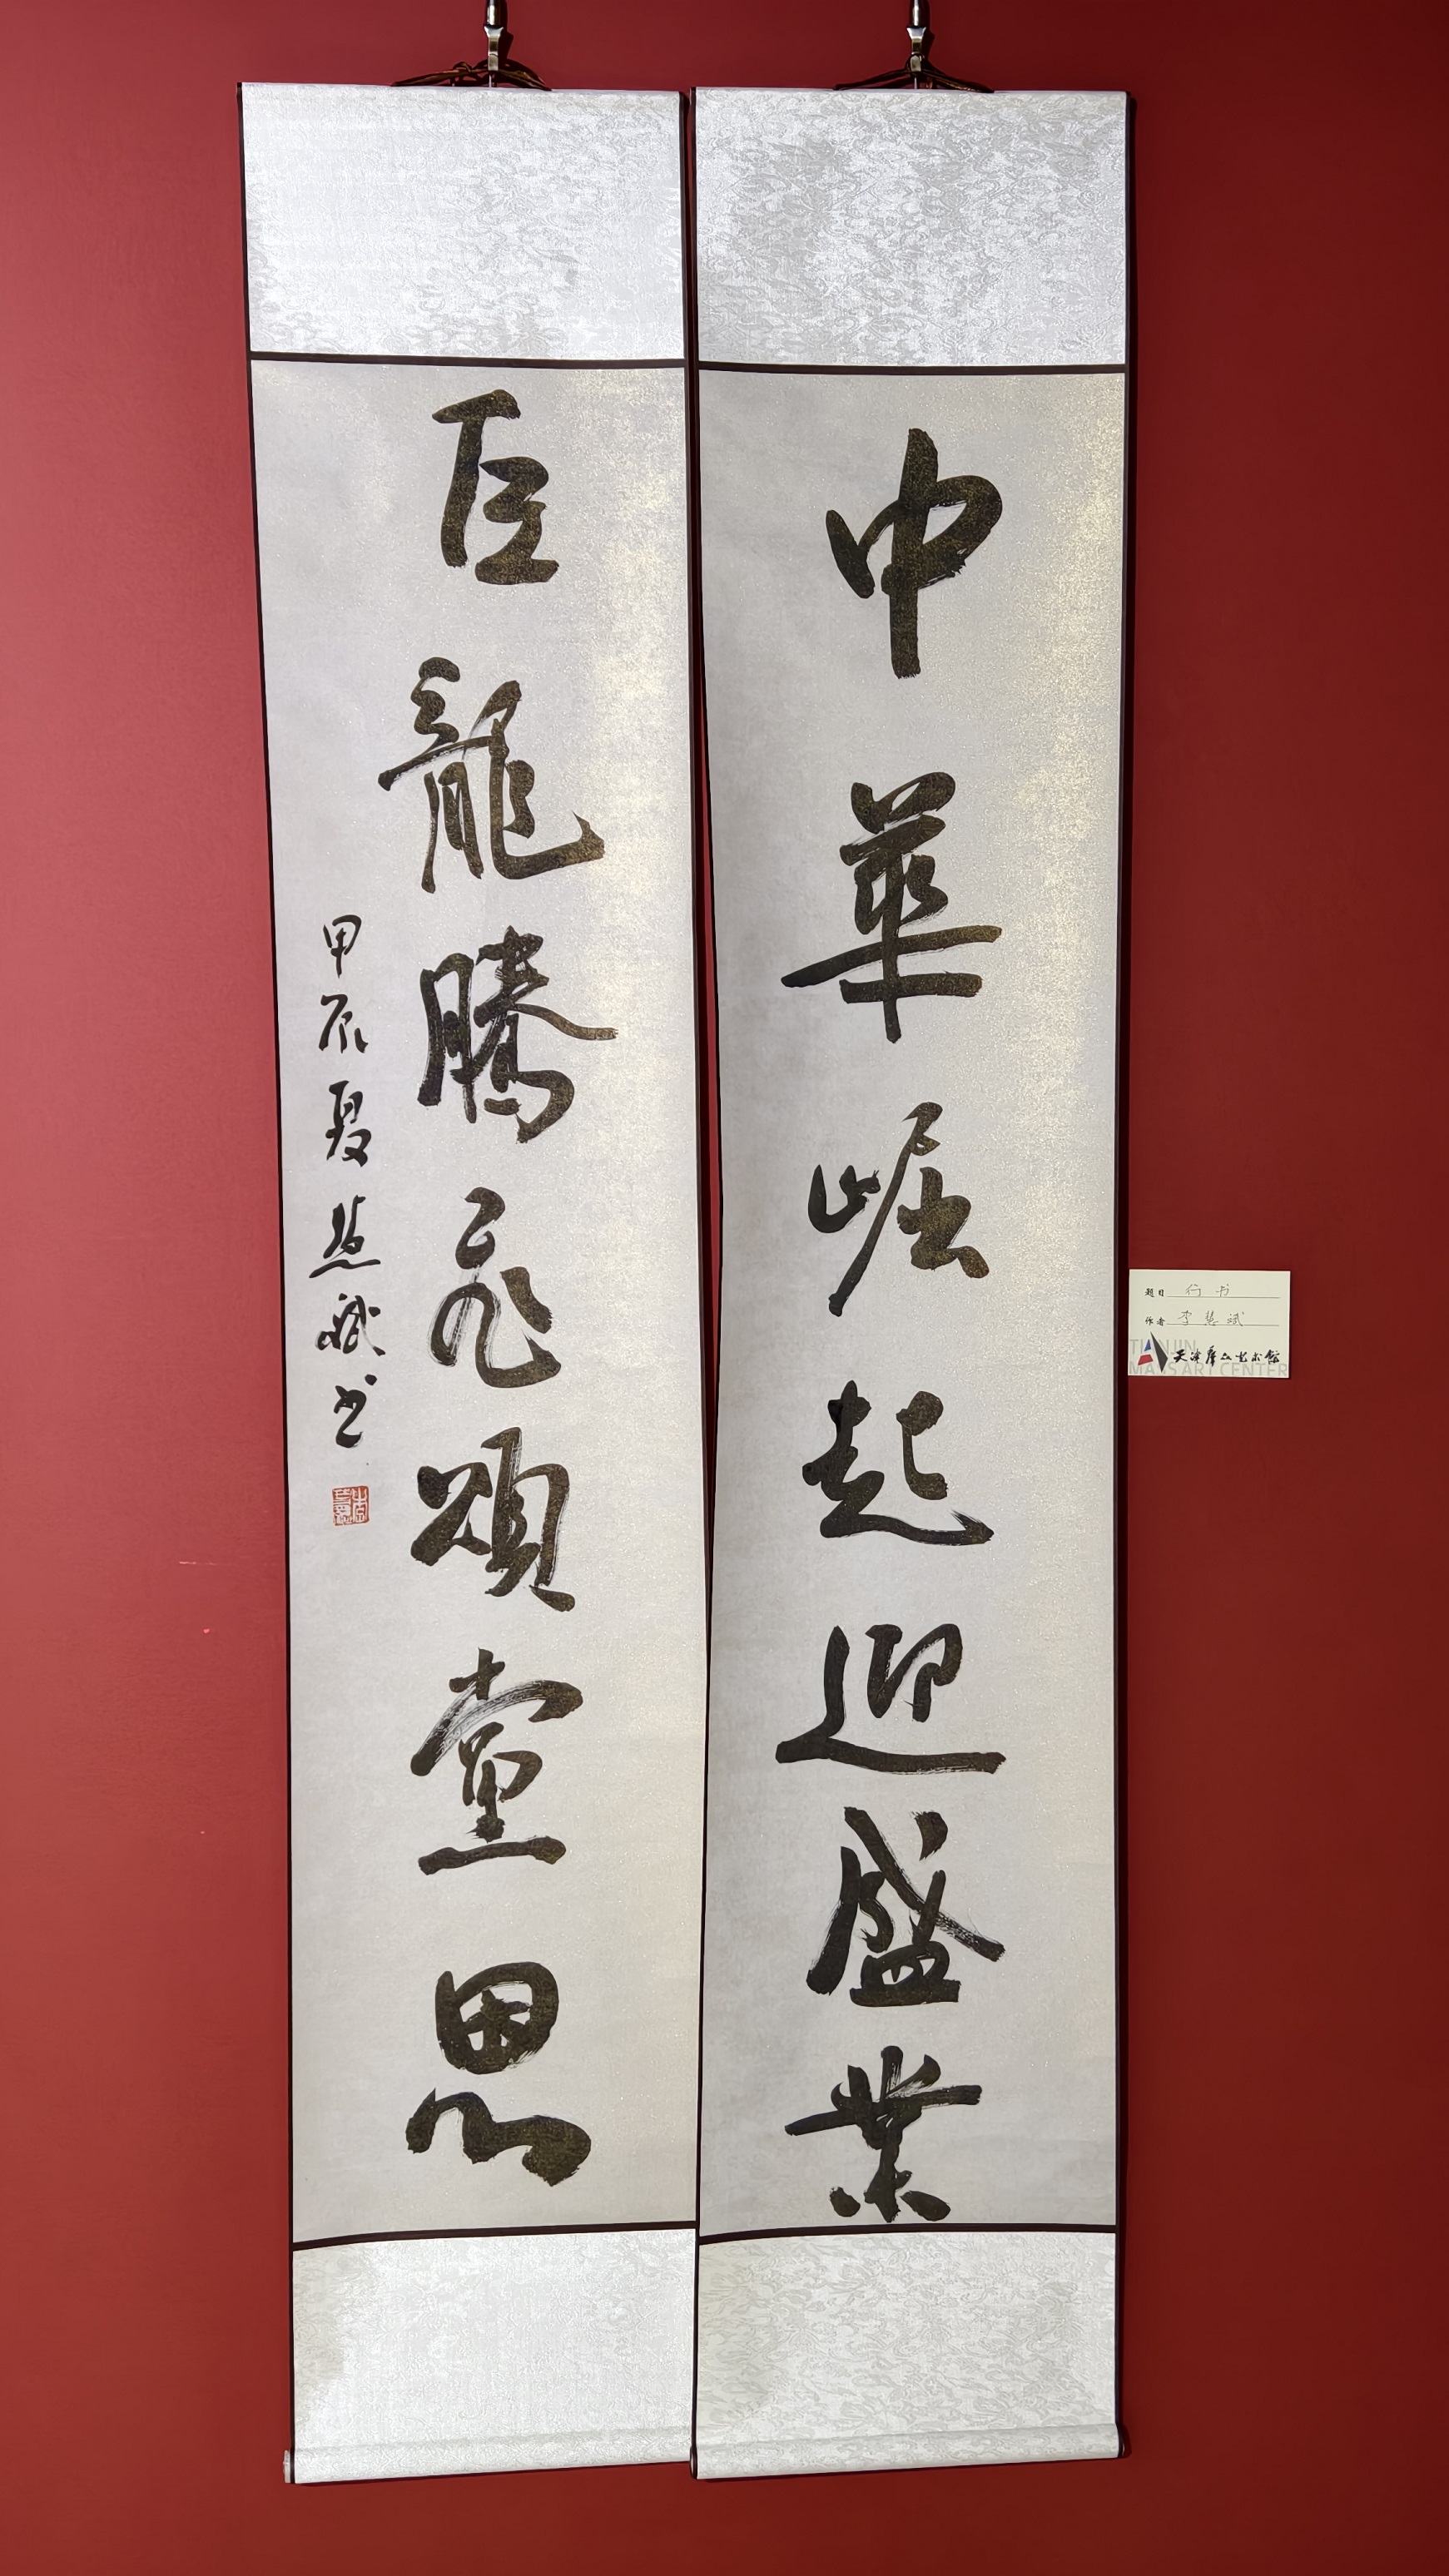 中華崛起迎盛業
巨龍騰飛頌黨恩
甲辰夏慧斌书
题目 行书
作者 李慧斌
天津群众艺术馆
TIANJIN
MASS ART CENTER